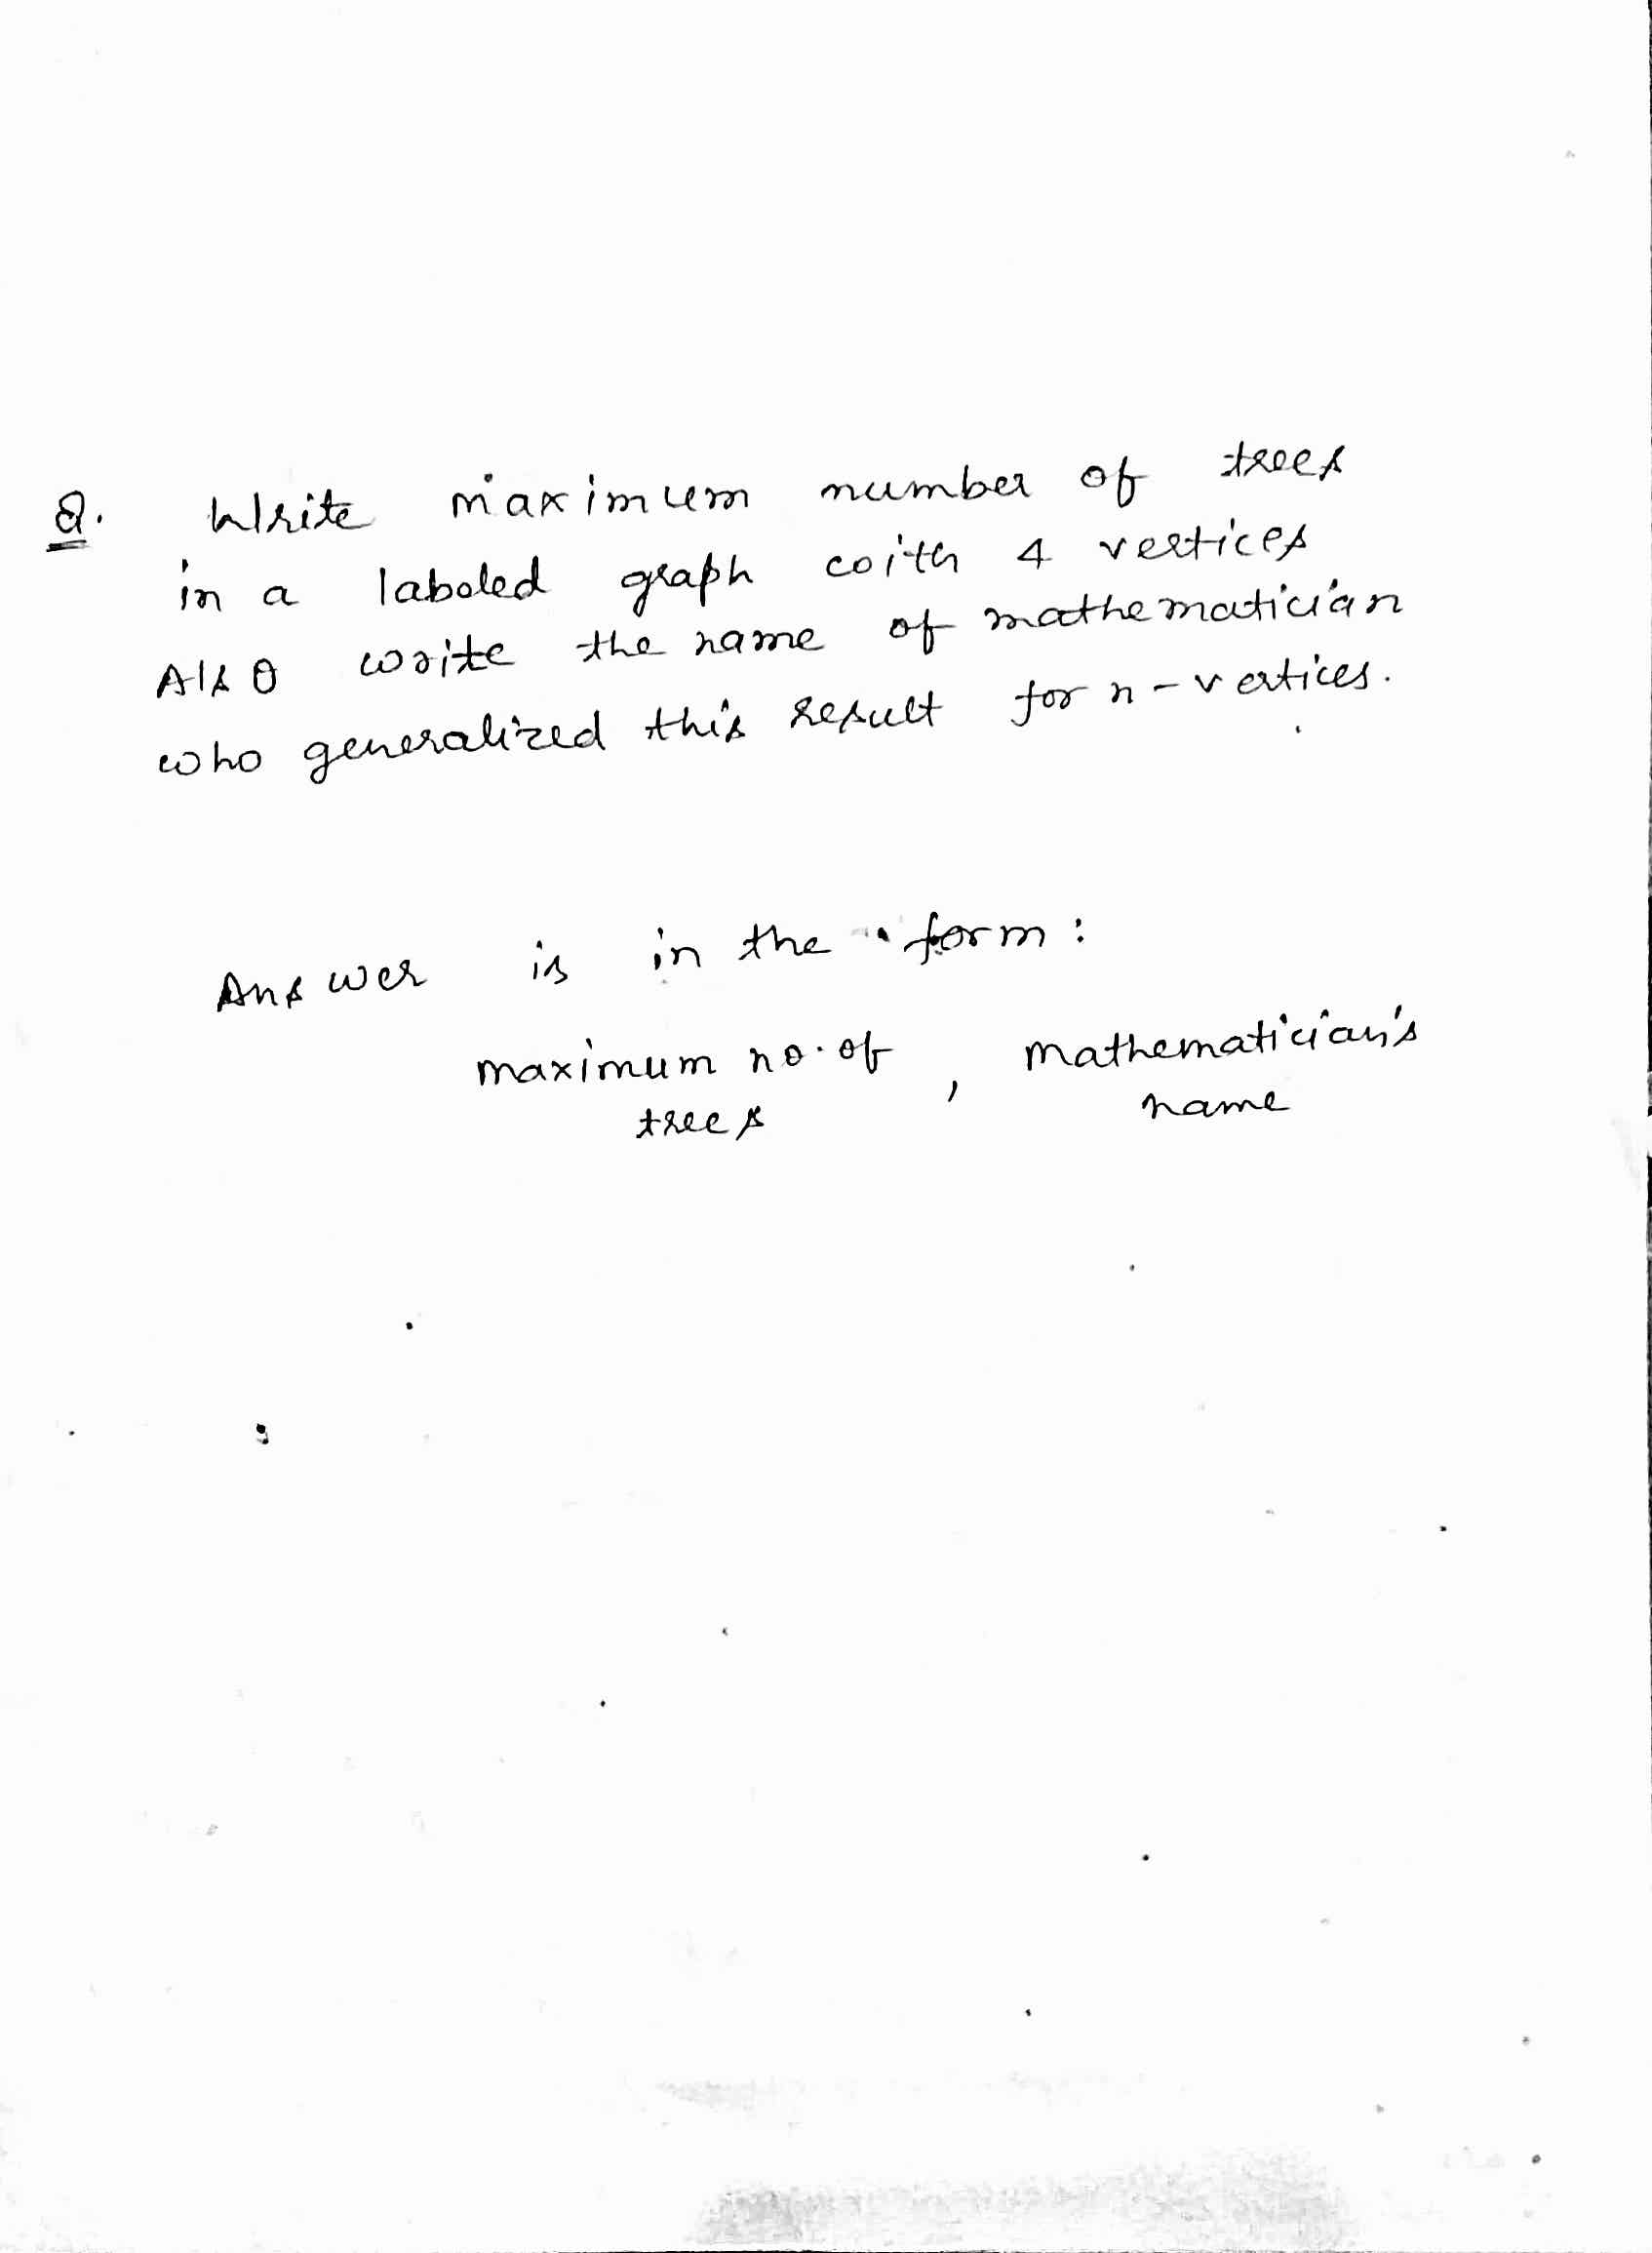 Q. Write maximum number of trees
in a laboled graph with 4 vertices
Also write the name of mathematician
who generalized this result for n-vertices.
Answer is in the form:
maximum no. of trees , mathematician's name